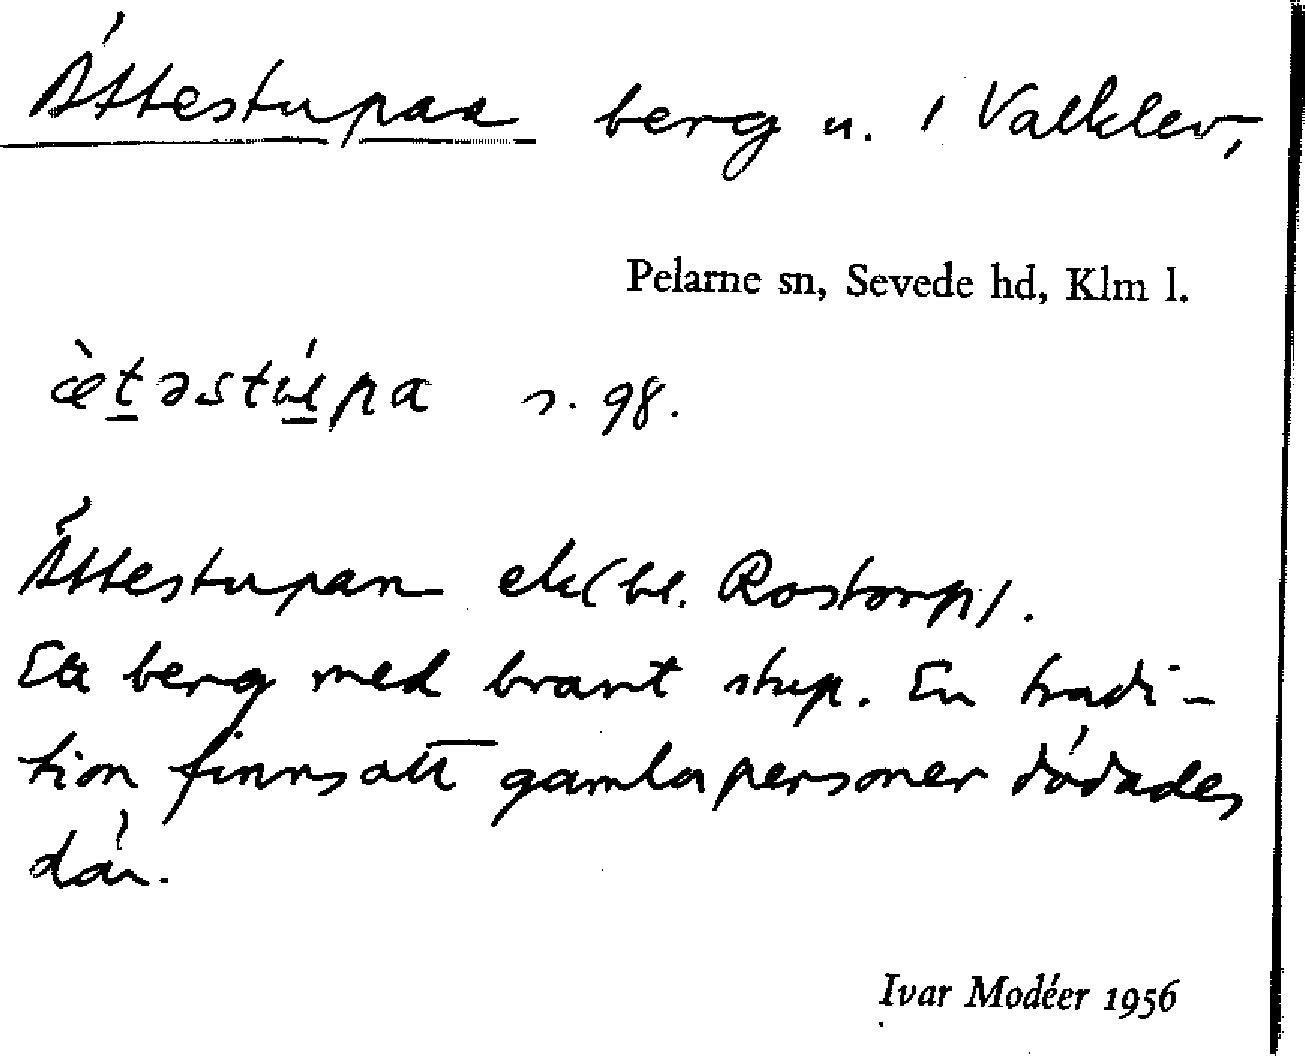 Ättestupaa berg u. i Valklev,
Pelarne sn, Sevede hd, Klm l.
æ̀təstúpa s. 98.
Ättestupan ek (bl. Rostorp).
Ett berg med brant stup. En tradi-
tion finns att gamla personer dödades
där.
Ivar Modéer 1956